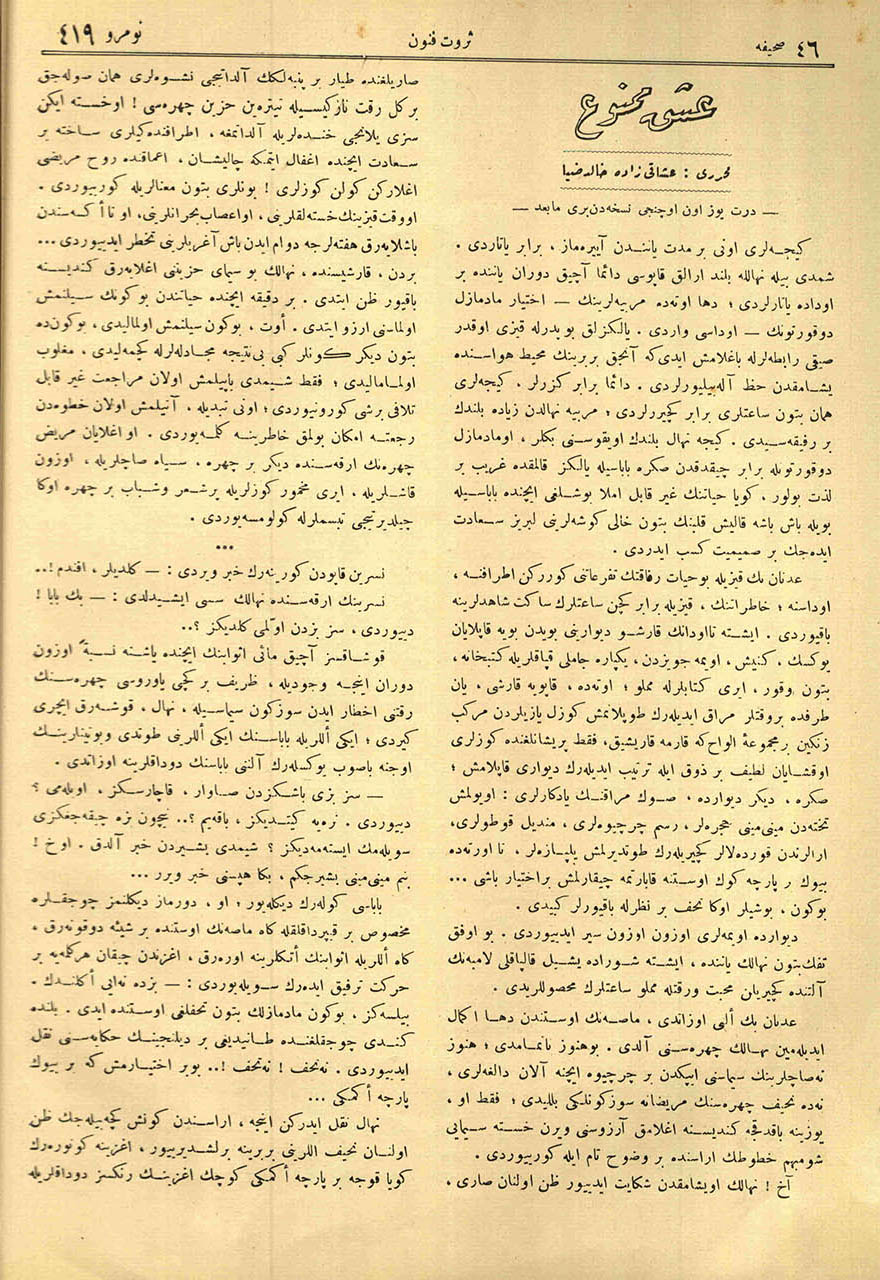 ٤٦ صحیفه
ثروت فنون
نومرو ٤١٩
عشق ممنوع
محرری : عشاقی زاده خالد ضیا
— درت یوز اون اوچنجی نسخه‌دن‌بری مابعد —
کیجه‌لری اونی بر مدت یاننـدن آییره‌ماز ، برابر یاتاردی .
شمدی بیله نهالله بلند ارالق قاپوسی دائما آچیق دوران یاننده بر
اوداده یاتارلردی ؛ دها اوته‌ده مربیه‌لرینك — اختیار مادمازل
دوقورتونك — اوداسی واردی . یالکزلق بوپدرله قیزی اوقدر
صیقی رابطه‌لرله باغلامش ایدی‌که آنجق بربرینك محیط هواسنده
یشـامقدن حظ آله‌بیلیورلردی . دائما برابر کزرلر ، کیجه‌لری
همان بتون ساعتلری برابر کچیررلردی ؛ مربیه نهالدن زیاده بلندك
بر رفیقه‌سیدی . کیجه نهال بلندك اویقوسنی بکلر ، اومادمازل
دوقورتونله برابر چیقدقدن صکره باباسیله یالکز قالمقده غریب بر
لذت بولور ، کویا حیاتنك غیر قابل املا بوشلغی ایچنده باباسیله
بویله باش باشه قالیش قلبنك بتون خالی کوشه‌لرینی لبریز سـعادت
ایده‌جك بر صمیمیت کسب ایدردی .
عدنان بك قیزیله بوحیات رفاقتك تفرعاتنی کوررکن اطرافنـه ،
اوداسنه ؛ خاطراتنك ، قیزیله برابر کچن ساعتلرك ساکت شاهدلرینه
باقیوردی . ایشته تااودانك قارشو دیوارینی بویدن بویه قاپلایان
یوکسك ، کنیش ، اویمه جویزدن ، یکپاره جاملی قپاقلریله کتبخانه ،
بتون وقور ، ایری کتابلرله مملو ؛ اوته‌ده ، قاپویه قارشی ، یان
طرفده بروقتلر مراق ایدیله‌رك طوپلانمش کوزل یازیلردن مرکب
زنکین برمجموعۀ الواح‌که قارمه قاریشیق، فقط پریشانلغنده کوزلری
اوقشایان لطیف بر ذوق ایله ترتیب ایدیله‌رك دیواری قاپلامش ؛
صکره ، دیکر دیوارده ، صـوك مراقنـك یادکارلری : اویولمش
تخته‌دن مینی‌مینی حجره‌لر ، رسم چرچیوه‌لری ، مندیل قوطولری،
ارالرندن قورده‌لالر کچیریله‌رك طوندیرلمش یلپـازه‌لر ، تا اورته‌ده
بیوك بر پارچه کوك اوستنه قابارتمه چیقارلمش براختیار باشی ...
بوکون ، بوشیلر اوکا نحف بر نظرله باقیورلر کبیدی .
دیوارده اویمه‌لری اوزون اوزون سیر ایدییوردی . بو اوفق
تفك‌بتون نهالك یاننده ، ایشته شـوراده یشیـل قالپاقلی لامبه‌نك
آلتنده کچیریلن محبت ورقتله مملو ساعتلرك محصوللریدی .
عدنان بك ألنی اوزاتدی ، ماصه‌نك اوستندن دهـا اکمال
ایدیله‌مین نهـالك چهره‌سـنی آلدی . بوهنوز یاتمامدی ؛ هنوز
نه‌صاچلرینك سیماسنی ایپکدن بر چرچیوه ایچنه آلان دالغه‌لری ،
نه‌ده نحیف چهره‌سنك مریضانه سوزکونلکی بللیدی ؛ فقط او ،
یوزینه باقدقجه کندیسنـه اغلامق آرزوسنی ویرن خسته سیمایی
شومبهم خطوطك اراسنده بر وضوح تام ایله کورییوردی .
آخ ! نهالك اویشامقدن شکایت ایدییور ظن اولنان صاری ،
صاریلغنده طیار بر پنبه‌لکك آلداتیجی نشوه‌لری همان صوله‌جق
برکل رقت نازکیسیله تیتره‌ین حزین چهره‌سی ! اوخسته ایکن
سزی یلانجی خنده‌لریله آلداتمغه ، اطرافنده‌کیلری ساخته بر
سـعادت ایچنده اغفال ایتمکه چالیشان ، اعماقنده روح مریضی
اغلارکن کولن کوزلری ! بونلری بتون معنالریله کورییوردی .
اووقت قیزینك خسته‌لقلرینی ، اواعصاب بحرانلرینی، او تا أکسه‌سندن
باشلایه‌رق هفته‌لرجه دوام ایدن باش آغریلرینی تخطر ایدییوردی ...
بردن ، قارشیسنده ، نهالك بو سیمای حزینی اغلایه‌رق کندیسنه
باقیور ظن ایتدی . بر دقیقه ایچنده حیاتندن بوکونك سیلنمش
اولماسنی ارزو ایتدی . أوت ، بوکون سیلنمش اولمالیدی ، بوکون‌ده
بتون دیکر کونلر کبی بی‌نتیجه مجادله‌لرله کچمه‌لیدی ، مغلوب
اولمامالیدی ؛ فقط شیمدی یاپیلمش اولان مراجعت غیر قابل
تلافی برشی کورونیوردی ؛ اونی تبدیله ، آتیلمش اولان خطوه‌دن
رجعتـه امکان بولمق خاطرینـه کلمه‌یوردی . او اغلایان مریض
چهره‌نك ارقه‌سـنده دیکر بر چهره ، سیـاه صاچلریله ، اوزون
قاشـلریله ، ایری مخمور کوزلریله پرشعر وشباب بر چهره اوکا
چیلدیرتیجی تبسملرله کولومسه‌یوردی .
...
نسرین قاپودن کورینه‌رك خبر ویردی : — کلدیلر ، افندم !..
نسرینك ارقه‌سنده نهالك سسی ایشیدلدی : — بك بابا !
دییوردی ، سز بزدن اوّلمی کلدیکز ؟..
قوشاقسز آچیق مائی اثوابنك ایچنده یاشنه نسبةً اوزون
دوران اینجـه وجودیله ، ظریف بر کچی یاوروسی چهره‌سـنك
رقتنی اخطار ایدن سوزکون سیماسیله ، نهال ، قوشه‌رق ایچری
کیردی ؛ ایکی أللریله باباسنك ایکی أللرینی طوتدی وبوتینلرینك
اوجنه باصوب یوکسله‌رك آلنی باباسنك دوداقلرینه اوزاتدی .
— سز بزی باشکزدن صـاوار ، قاچارسکز ، اویله‌می ؟
دییوردی . نره‌یه کیتـدیکز ، باقه‌یم ؟.. نیچون بزه چیقه‌جغکزی
سویله‌مك ایسته‌مه‌دیکز ؟ شیمدی بشیردن خبر آلدق . اوخ !
بنم مینی‌مینی بشیرجکم ، بکا هپسنی خبر ویرر ...
باباسی کوله‌رك دیکله‌یور ؛ او ، دورماز دیکلنمز چوجقلره
مخصوص بر قپیرداقلقله کاه ماصه‌نك اوستنده بر شیئه دوقونه‌رق ،
کاه أللریله اثوابنك أتکلرینه اوره‌رق ، اغزندن چیقان هرکلمه‌یه بر
حرکت ترفیق ایده‌رك سـویله‌یوردی : — بزده نه‌ایی أکلندك .
بیلسه‌کز ، بوکون مادمازلك بتون تحفلغی اوستنده ایدی . بلنده
کنـدی چوجقلغنده طـانیدیغی بر دیلنجینـك حکایه‌سـنی نقل
ایدییوردی . نه‌تحف ! نه‌تحف !.. بوبر اختیارمش که بر بیوك
پارچه أکمکی ...
نهال نقل ایدرکن اینجه ، اراسندن کونش کچه‌بیله‌جك ظن
اولنـان نحیف اللرینی بربرینه برلشدیرییور ، اغزینه کوتوره‌رك
کویا قوجه بر پارچه أکمکی کوچك اغزینك رنکسز دوداقلریله